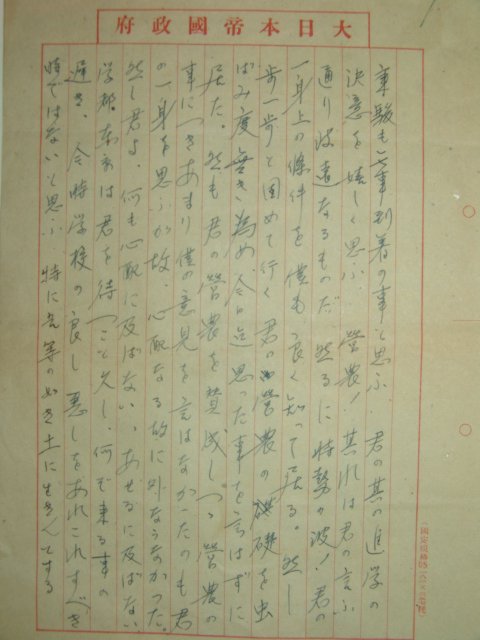 府政國帝本日大
車駿も無事到着の事と思ふ 君の其の進学の
決意を嬉しく思ふ 営農！其れは君の言ふ
通り波遠なるものだ 然るに時勢の波！君の
一身上の條件を僕も良く知って居る。然し
歩一歩と固めて行く君の営農の礎を虫
ばみ度無き為め今日迄思った事を言はずに
居た。然も君の営農を賛成しつゝ営農の
事につきあまり僕の意見を言はなかったのも君
の一身を思ふが故、心配なる故に外ならなかった。
然し君よ、何も心配に及ばない、あせるに及ばない
学都東京は君を待つこと久し、何ぞ来る事の
遅き、今時学校の良し悪しをあれこれすべき
時ではないと思ふ 特に吾等の如き土に生きんとする